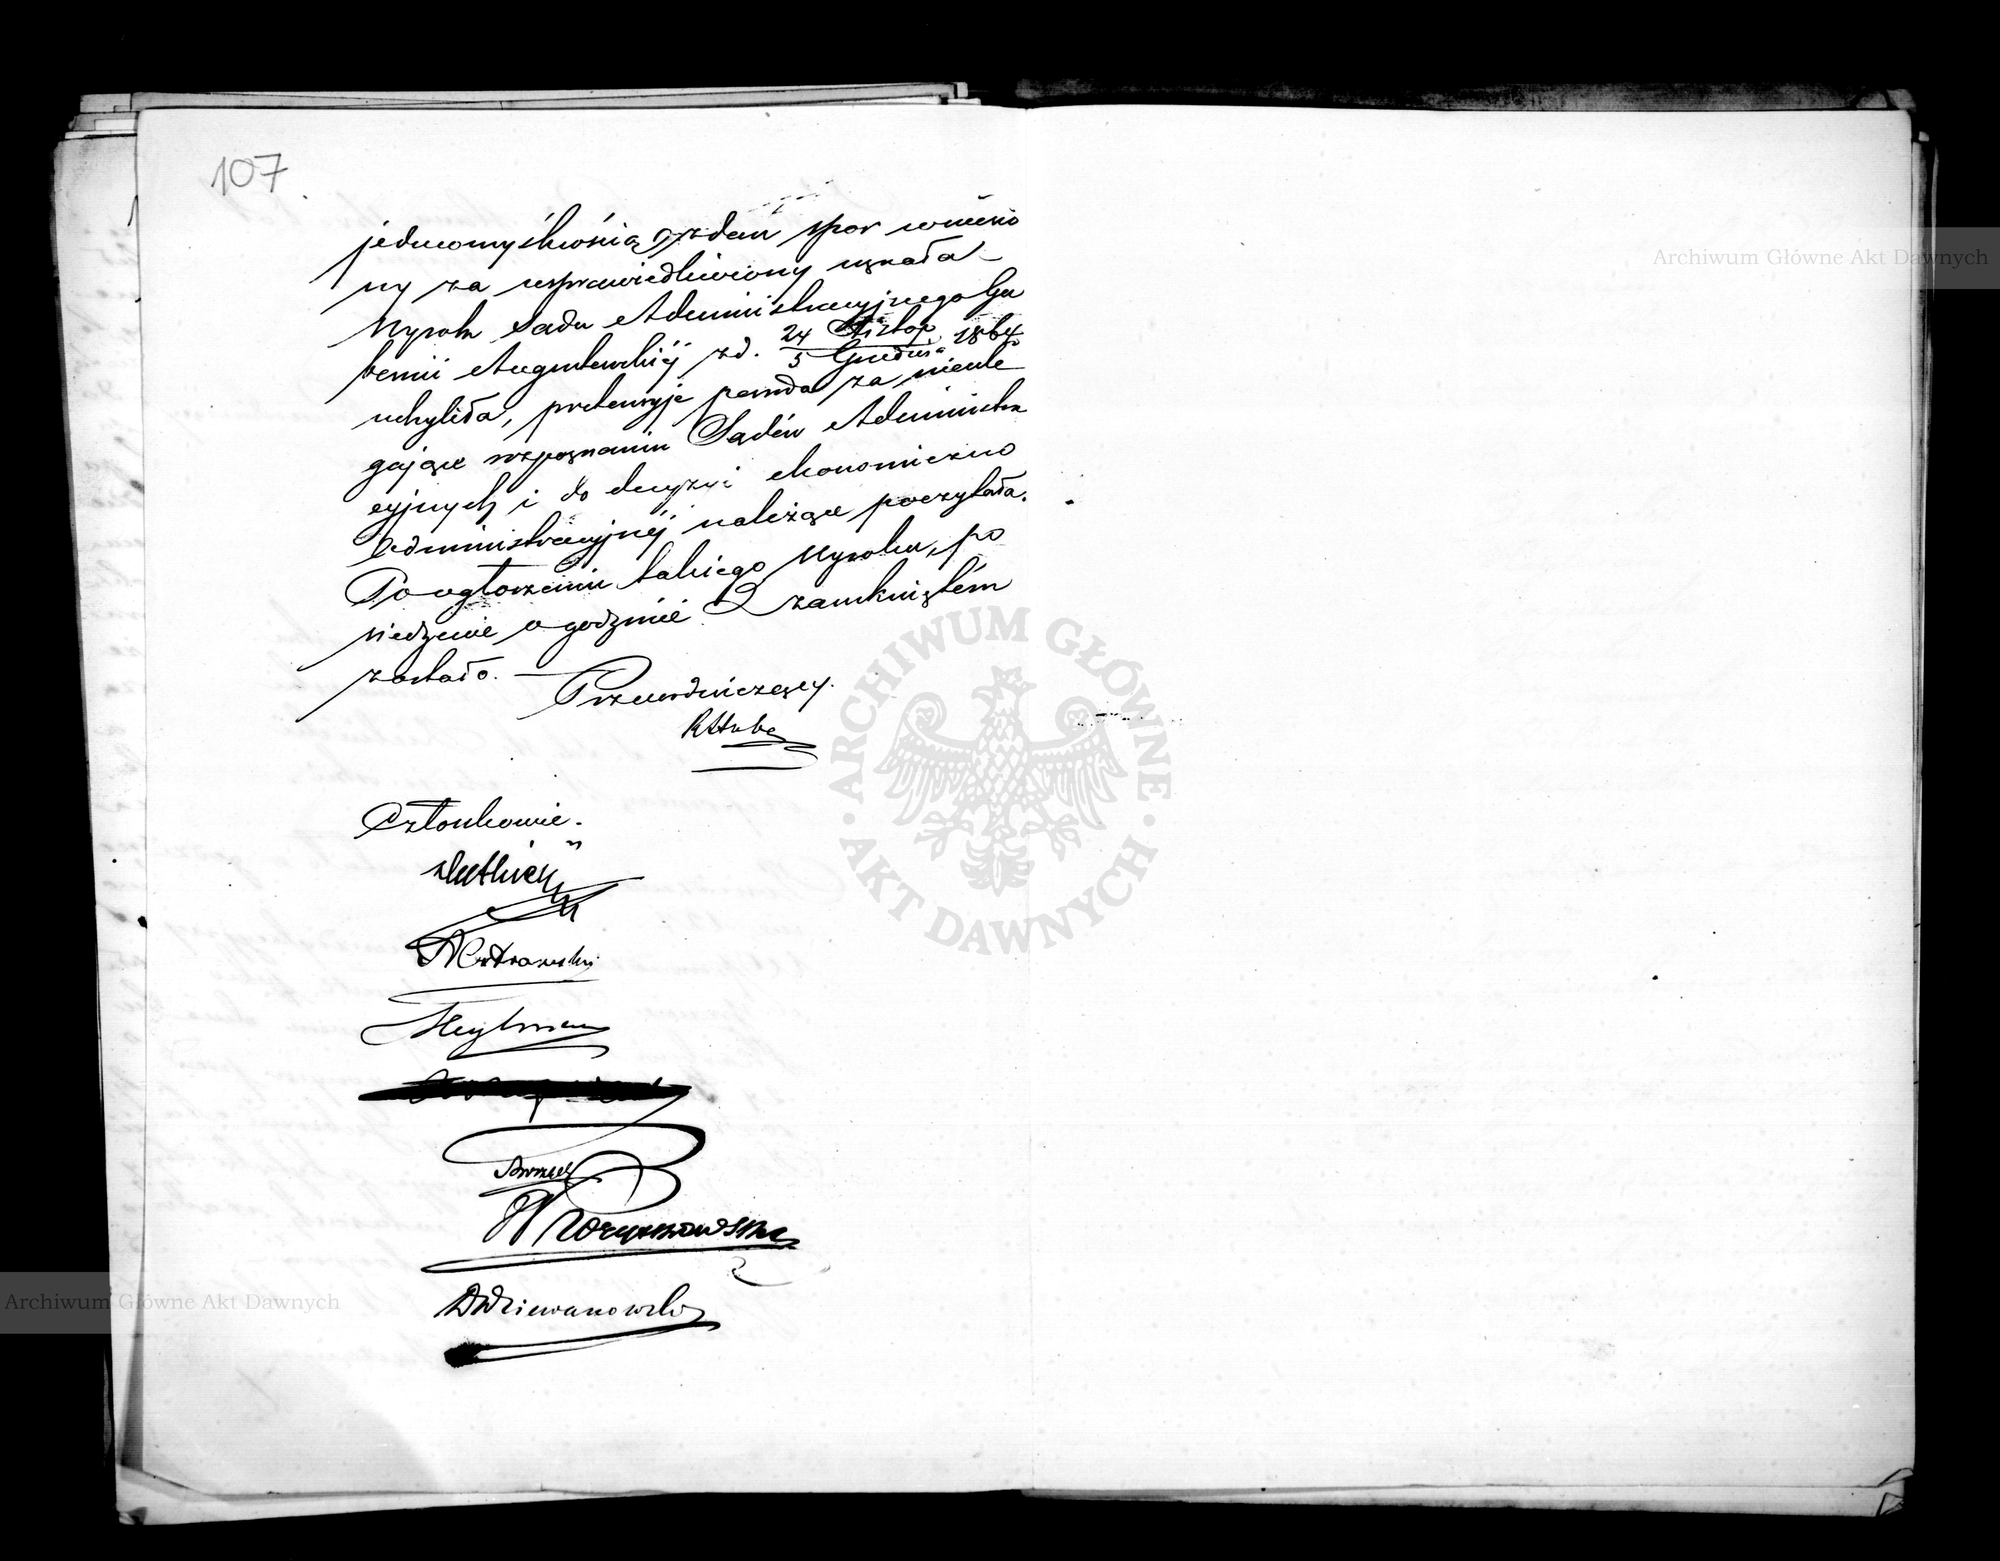 107
jednomyślnością zdań spor wniesio
ny za usprawiedliwiony uznała
Wyrok Sądu Administracyjnego Gu
bernii Augustowskiéj z d. 24 Listop. / 5 Grudnia 1864
uchyliła, pretensyje powoda za nieule
gające rozpoznaniu Sądów Administra
cyjnych i do decyzyi ekonomiczno
Administracyjnéj należące poczytała.
Po ogłoszeniu takiego Wyroku, po
siedzenie o godzinie 2 zamkniętém
zostało. —
Przewodniczący.
RHube
Członkowie.
Heylman
DDziewanowski
Archiwum Główne Akt Dawnych
ARCHIWUM GŁÓWNE
AKT DAWNYCH
Archiwum Główne Akt Dawnych